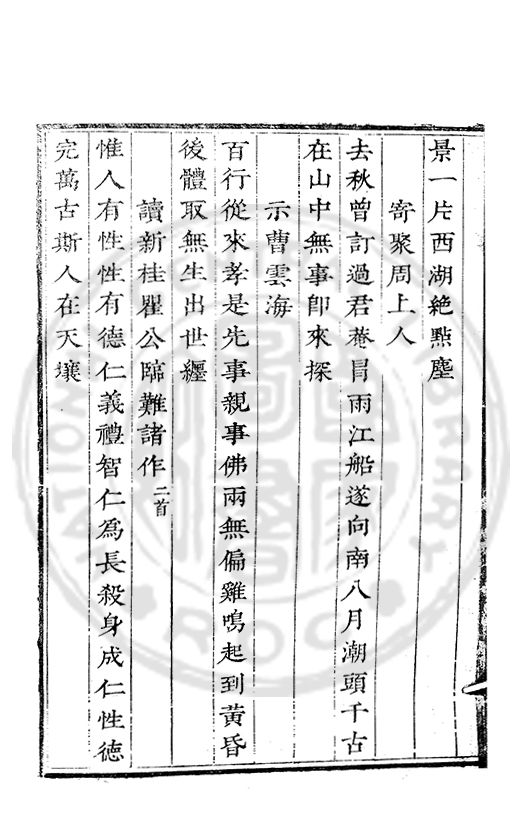 景一片西湖絶點塵
寄聚周上人
去秋曾訂過君菴冒雨江船遂向南八月潮頭千古
在山中無事即來探
示曹雲海
百行從來孝是先事親事佛兩無偏雞鳴起到黃昏
後體取無生出世纏
讀新桂瞿公臨難諸作二首
惟人有性性有德仁義禮智仁爲長殺身成仁性德
完萬古斯人在天壤